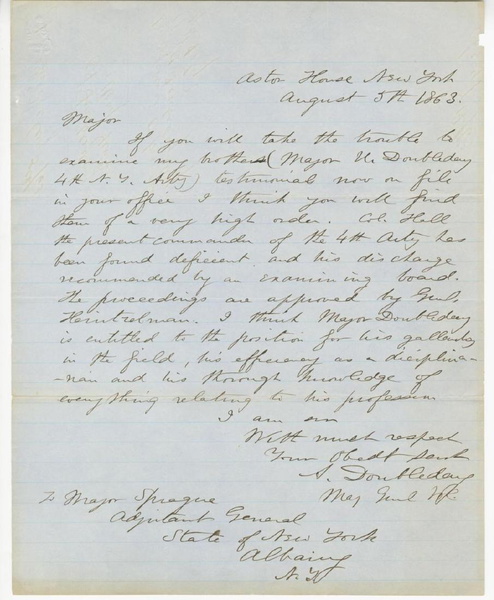 Astor House New York
August 5th 1863.
Major
If you will take the trouble to
examine my brothers (Major U. Doubleday
4th N.Y. Arty) testimonial now on file
in your office I think you will find
them of a very high order. Col. Hall
the present commander of the 4th Arty has
been found deficient and his discharge
recommended by an examining board.
The proceedings are approved by Genl.
Heintzelman. I think Major Doubleday
is entitled to the position for his gallantry
in the field, his efficiency as a disciplina-
-rian and his thorough knowledge of
everything relating to his profession
I am sir
With much respect
Your Obedt Servt
A. Doubleday
Maj Genl Vols
To Major Sprague
Adjutant General
State of New York
Albany
N.Y